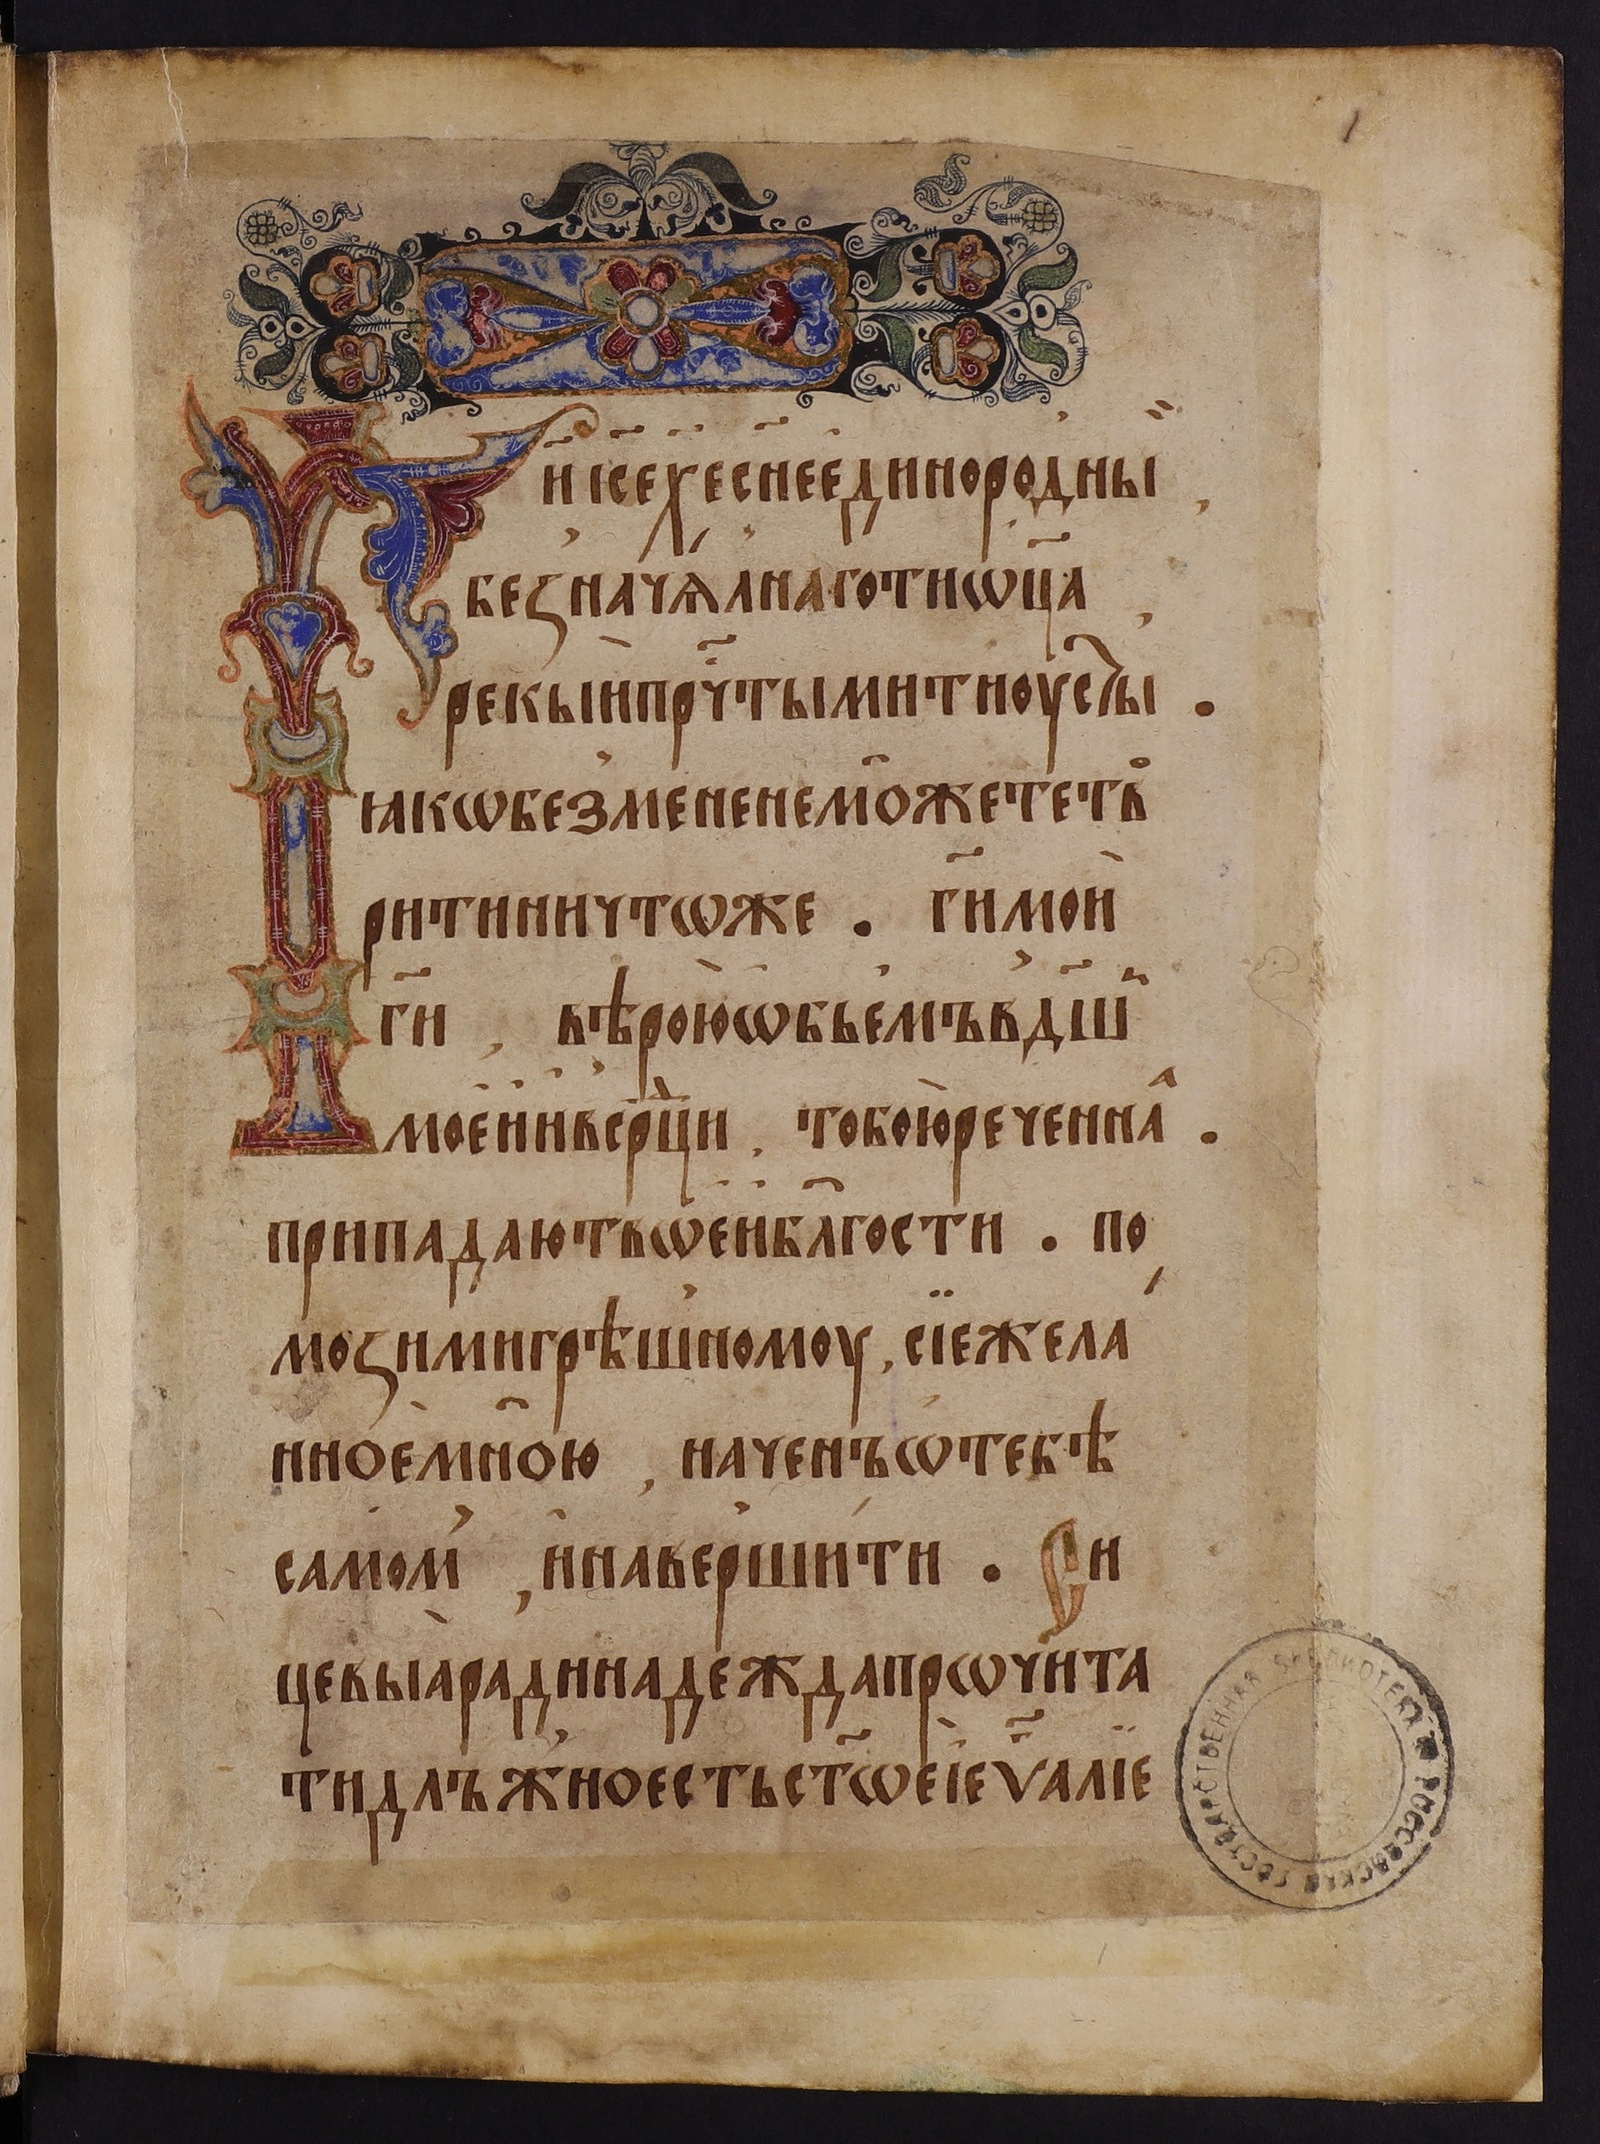 1
Г҃и і҃се х҃е сн҃е единородныи
безначѧлнаго ти ѡц҃а
рекыи прч҃тыми ти оусты .
ꙗкѡ без мене не можете твѡ
рити ничтѡже . г҃и мои
г҃и , вѣрою ѡбьемъ в дш҃и
моеи и в срⷣци , тобою реченнаа .
припадаю твѡеи бл҃гости . по
моѕи ми грѣшномоу , сїе жела
нное мною , наченъ ѡ тебѣ
самом , и навершити . Си
цевыа ради надежда прѡчита
ти длъжно есть ст҃ѡе іеѵ҃алїе
ГОСУДАРСТВЕННАЯ БИБЛИОТЕКА РОССИЙСКАЯ